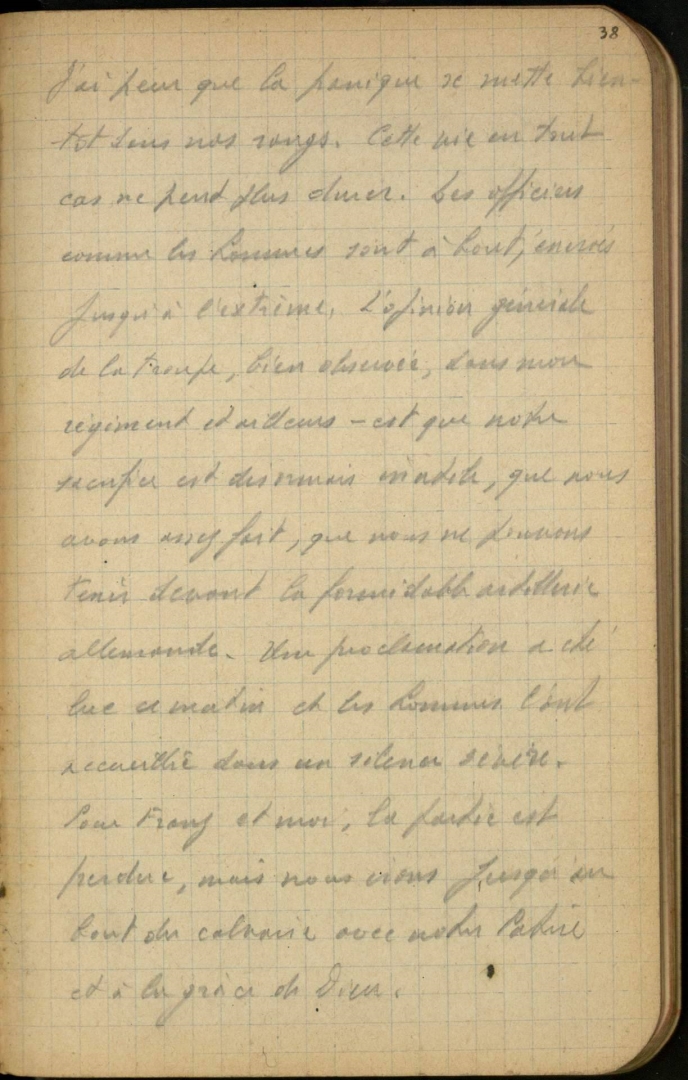 38
J'ai peur que la panique se mette bien-
tôt dans nos rangs. Cette vie en tout
cas ne peut plus durer. Les officiers
comme les hommes sont à bout, énervés
jusqu'à l'extrême. L'opinion générale
de la troupe, bien observée, dans mon
régiment et ailleurs – est que notre
sacrifice est désormais inutile, que nous
avons assez fait, que nous ne pouvons
tenir devant la formidable artillerie
allemande. Une proclamation a été
lue ce matin et les hommes l'ont
accueillie dans un silence sévère.
Pour Franz et moi, la partie est
perdue, mais nous irons jusqu'au
bout du calvaire avec notre Patrie
et à la grâce de Dieu.